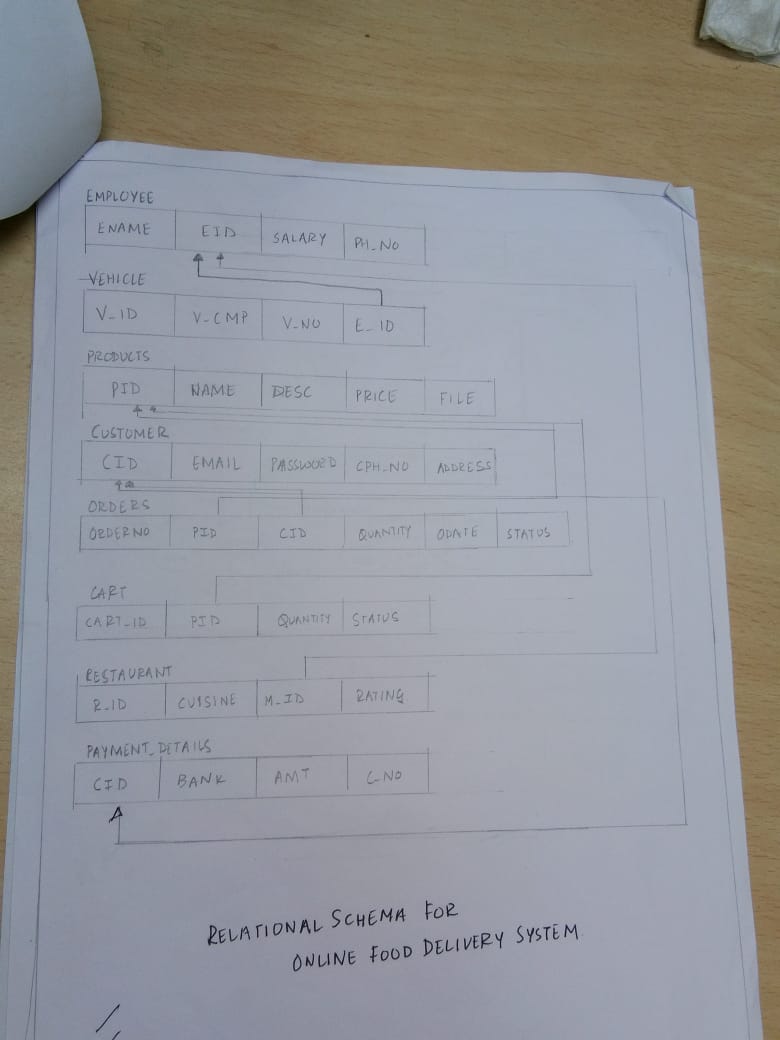 EMPLOYEE
ENAME EID SALARY PH_NO
VEHICLE
V_ID V_CMP V_NO E_ID
PRODUCTS
PID NAME DESC PRICE FILE
CUSTOMER
CID EMAIL PASSWORD CPH_NO ADDRESS
ORDERS
ORDERNO PID CID QUANTITY ODATE STATUS
CART
CART_ID PID QUANTITY STATUS
RESTAURANT
R_ID CUISINE M_ID RATING
PAYMENT_DETAILS
CID BANK AMT C_NO
RELATIONAL SCHEMA FOR
ONLINE FOOD DELIVERY SYSTEM